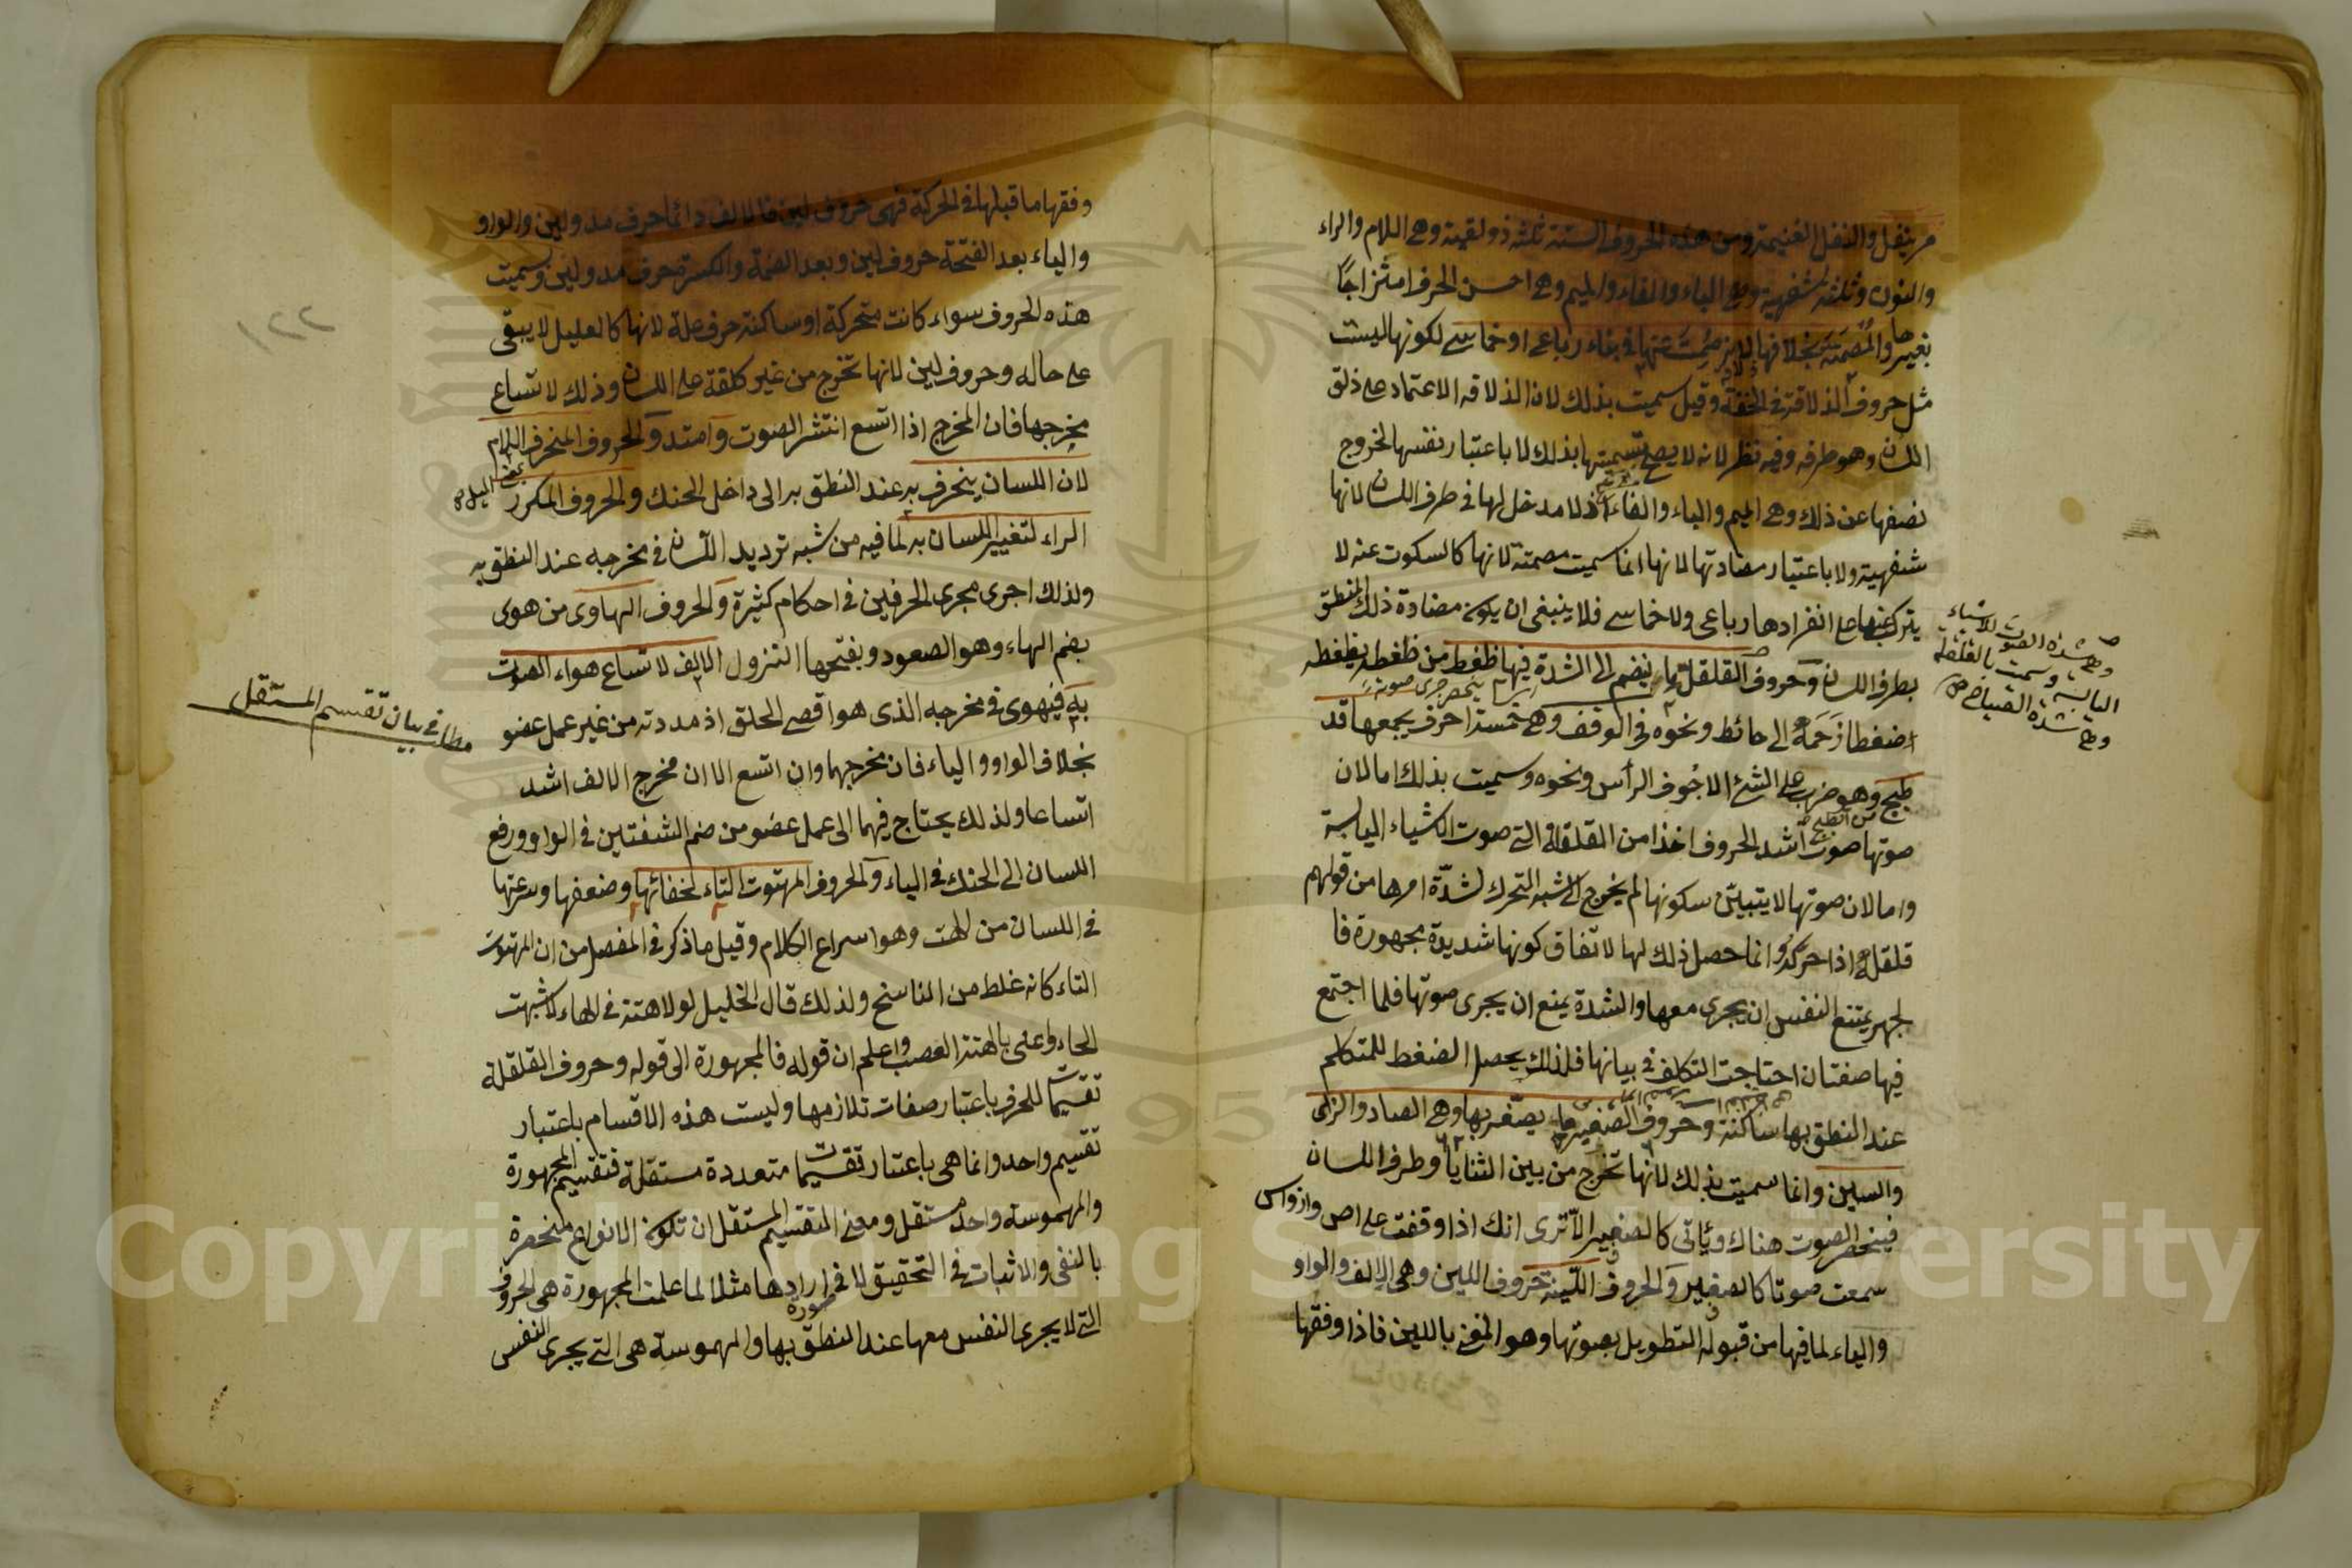 مر بنفل والنفل الغنيمة ومن هذه الحروف الستة ثلثة ذولقية وهى اللام والراء
والنون وثلثة شفهية وهى الباء والفاء والميم وهى احسن الحروف امتزاجًا
بغيرها والمصمتة بخلافها لانه صُمِتَ عنها فى بناء رباعى او خماسى لكونها ليست
مثل حروف الذلاقة فى الخفة وقيل سميت بذلك لان الذلاقة الاعتماد على ذلق
اللسان وهو طرفه وفيه نظر لانه لا يصح تسميتها بذلك لا باعتبار نفسها لخروج
نصفها عن ذلك وهى الميم والباء والفاء اذ لا مدخل لها فى طرف اللسان لانها
شفهية ولا باعتبار مضادتها لانها انما سميت مصمتة لانها كالسكوت عنه لا
يتركب عنها على انفرادها رباعى ولا خماسى فلا ينبغى ان يكون مضادة ذلك المنطق
بطرف اللسان وحروف القلقلة ما ينضم الى الشدة فيها ضغط من ضغطه يضغطه
اضغطا زحمه الى حائط ونحوه فى الوقف وهى خمسة احرف يجمعها قد
طبج وهو ضرب على الشئ الاجوف الرأس ونحوه وسميت بذلك اما لان
صوتها صوت اشد الحروف اخذا من القلقلة التى صوت الاشياء اليابسة
واما لان صوتها لا يتبين سكونها لم يخرج الى شبه التحرك لشدّة امرها من قولهم
قلقله اذا حركه وانما حصل ذلك لها لاتفاق كونها شديدة مجهورة فا
لجهر يمتنع النفس ان يجرى معها والشدة يمنع ان يجرى صوتها فلما اجتمع
فيها صفتان احتاجت التكلف فى بيانها فلذلك يحصل الضغط للمتكلم
عند النطق بها ساكنة وحروف الصفير ما يصفر بها وهى الصاد والزاى
والسين وانما سميت بذلك لانها تخرج من بين الثنايا وطرف اللسان
فينحصر الصوت هناك ويأتى كالصفير الا ترى انك اذا وقفت على اص واز واس
سمعت صوتا كالصفير والحروف اللينة حروف اللين وهى الالف والواو
والياء لما فيها من قبول التطويل بصوتها وهو المعنى باللين فاذا وفقها
وفقها ما قبلها فى الحركة فهى حروف لين فالالف دائما حرف مد ولين والواو
والياء بعد الفتحة حروف لين وبعد الضمة والكسرة حرف مد ولين وسميت
هذه الحروف سواء كانت متحركة او ساكنة حرف علة لانها كالعليل لا يبقى
على حاله وحروف لين لانها تخرج من غير كلفة على اللسان وذلك لاتساع
مخرجها فان المخرج اذا اتسع انتشر الصوت وامتد والحروف المنحرف اللام
لان اللسان ينحرف به عند النطق به الى داخل الحنك والحروف المكرر
الراء لتغيير اللسان به لما فيه من شبه ترديد اللسان فى مخرجه عند النطق به
ولذلك اجرى مجرى الحرفين فى احكام كثيرة والحروف الهاوى من هوى
بضم الهاء وهو الصعود وبفتحها النزول الالف لاتساع هواء الصوت
به فيهوى فى مخرجه الذى هو اقصى الحلق اذ مددته من غير عمل عضو
بخلاف الواو والياء فان مخرجهما وان اتسع الا ان مخرج الالف اشد
اتساعا ولذلك يحتاج فيهما الى عمل عضو من ضم الشفتين فى الواو ورفع
اللسان الى الحنك فى الياء والحروف المهتوت التاء لخفائها وضعفها وسرعتها
فى اللسان من الهت وهو اسراع الكلام وقيل ما ذكر فى المفصل من ان المهتوت
التاء كانه غلط من الناسخ ولذلك قال الخليل لولا هتة فى الهاء لاشبهت
الحاء واعلم ان قوله فالمجهورة الى قوله وحروف القلقلة
تقسيمات للحرف باعتبار صفات تلازمها وليست هذه الاقسام باعتبار
تقسيم واحد وانما هى باعتبار تقسيمات متعددة مستقلة فتقسيم المجهورة
والمهموسة واحد مستقل ومعنى التقسيم المستقل ان تكون الانواع منحصرة
بالنفى والاثبات فى التحقيق لا فى ايرادها صورة مثلا لما علمت المجهورة هى الحروف
التى لا يجرى النفس معها عند النطق بها والمهموسة هى التى يجرى النفس
مطلب فى بيان تقسيم المستقل
٢٢١
Copyright © King Saud University